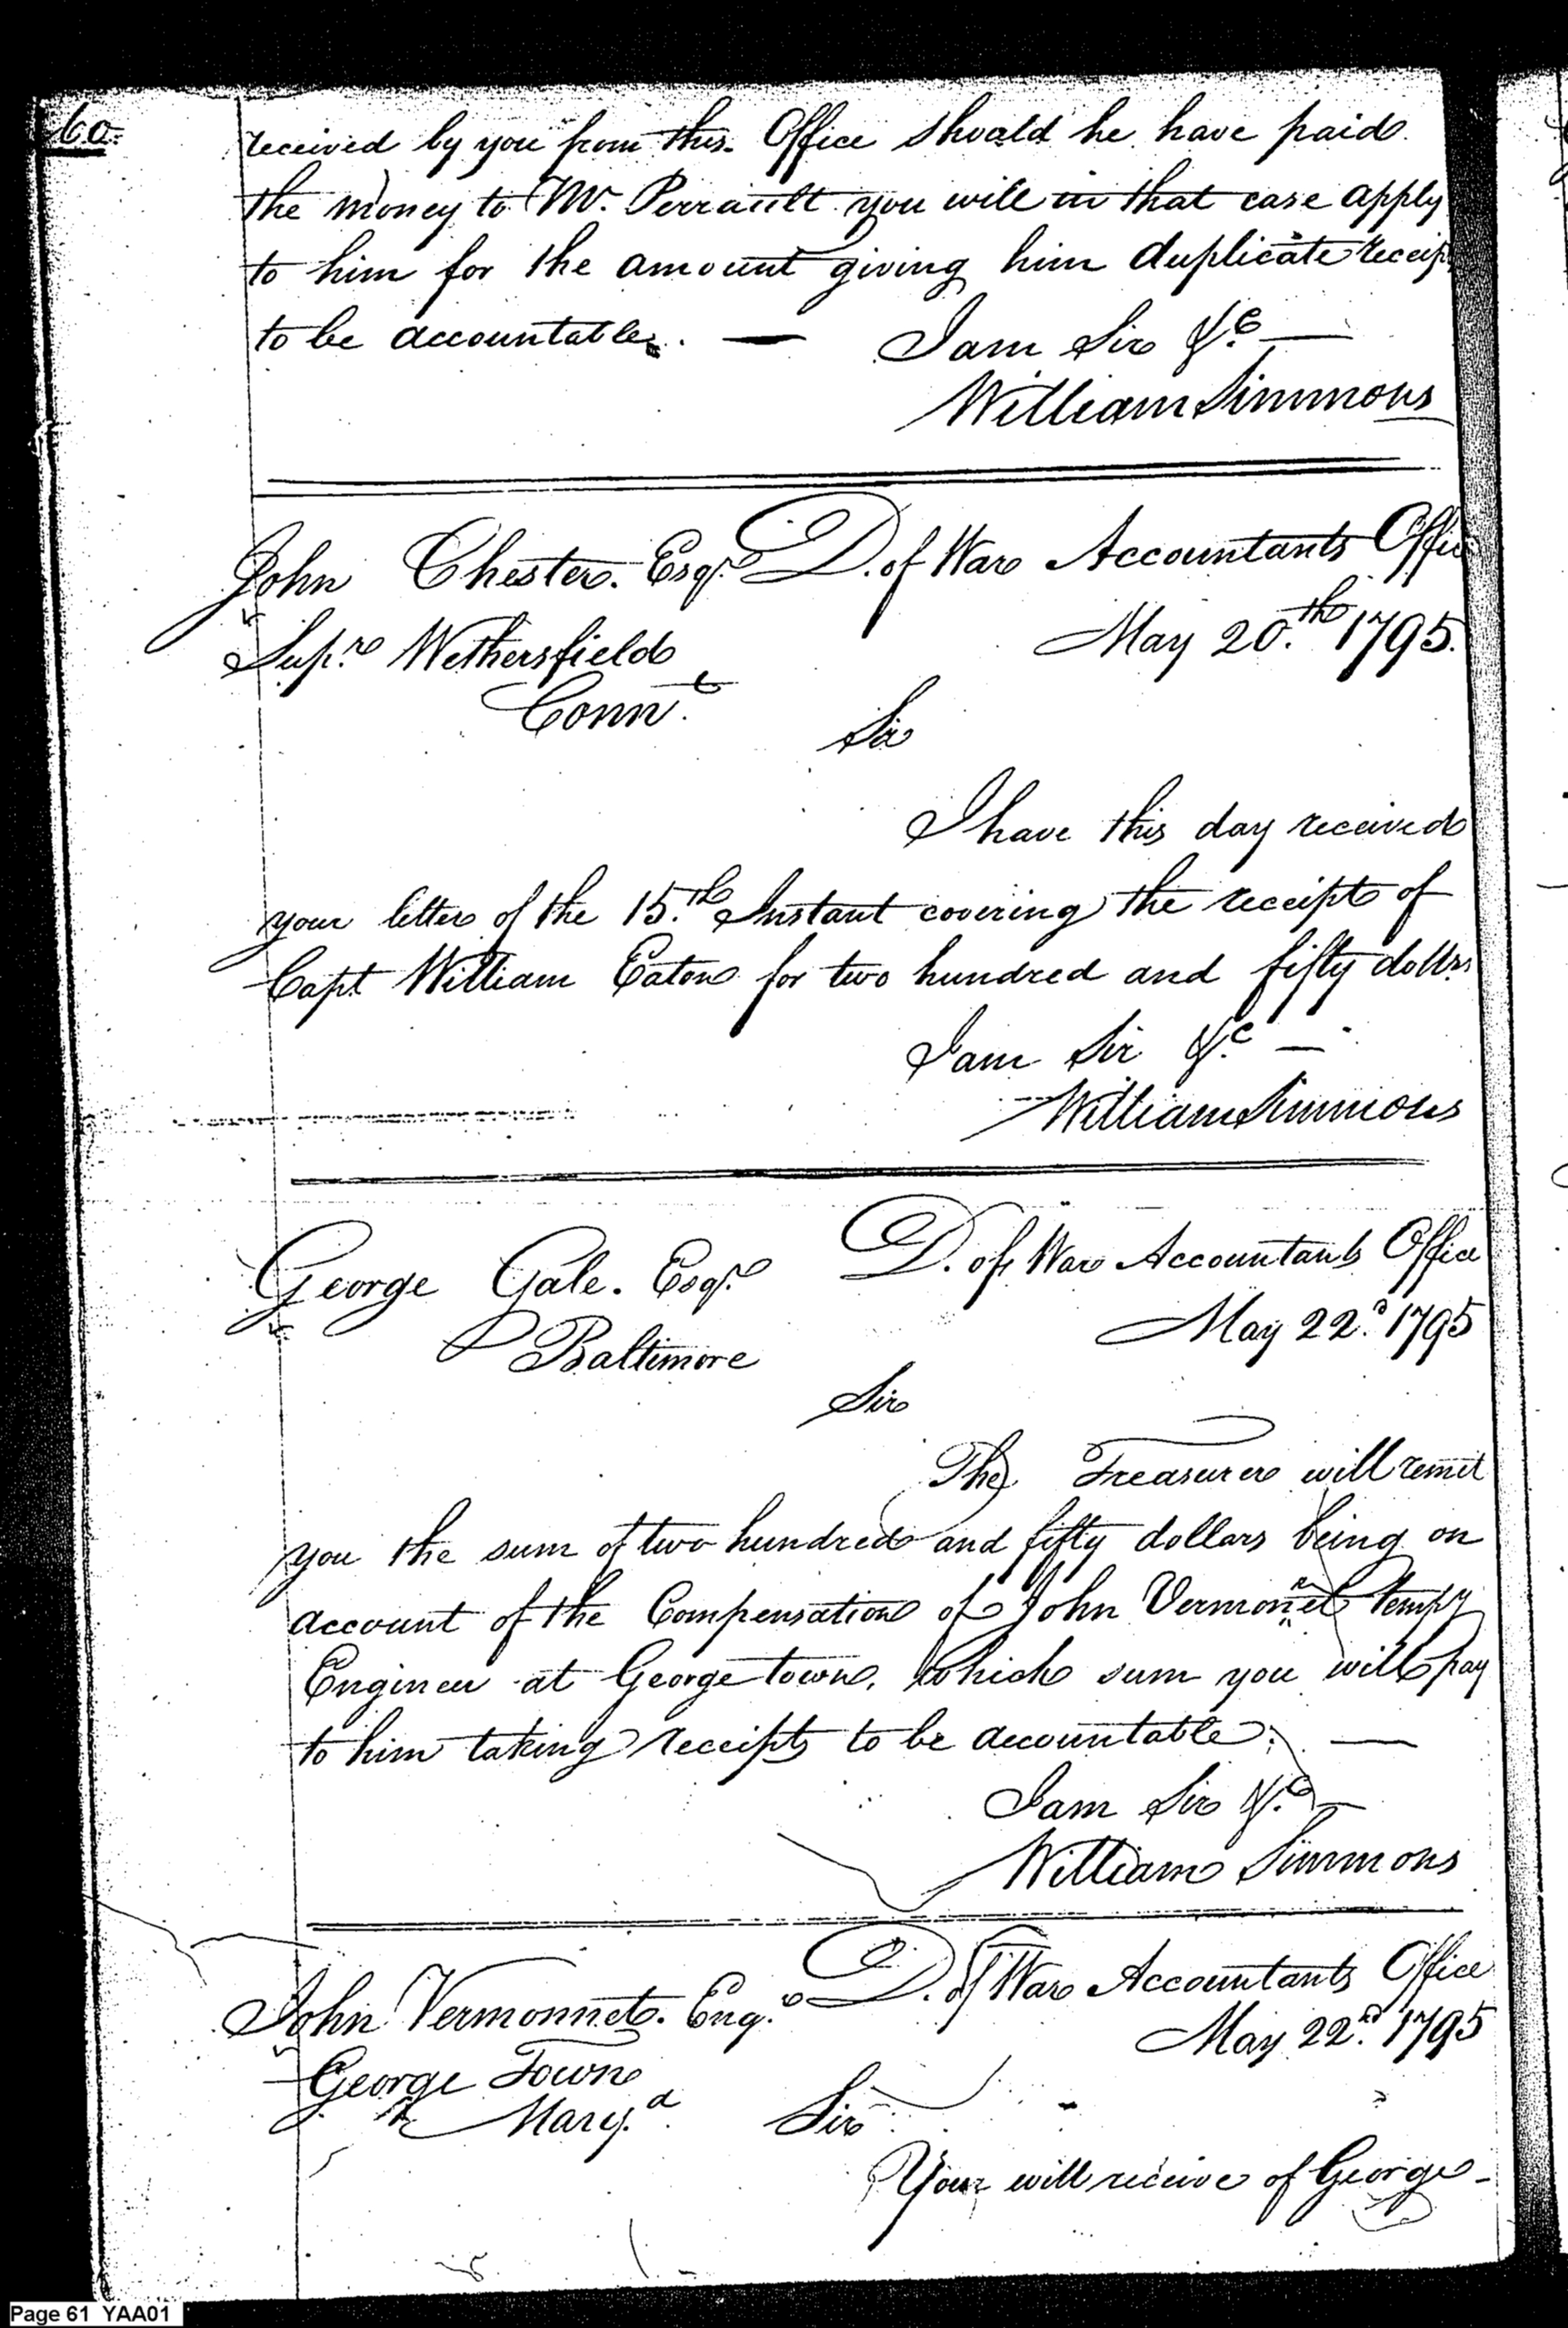 60.
received by you from this Office should he have paid
the money to Mr. Perrault you will in that case apply
to him for the amount giving him duplicate receip
to be accountable. —
I am Sir &c —
William Simmons
John Chester. Esqr. D. of War Accountants Offic
Supr. Wethersfield May 20.th 1795.
Connt.
Sir
I have this day received
your letter of the 15.th Instant covering the receipts of
Capt. William Eaton for two hundred and fifty dollrs
I am Sir &c —
William Simmons
George Gale. Esqr. D. of War Accountants Office
Baltimore May 22.d 1795
Sir
The Treasurer will remit
you the sum of two hundred and fifty dollars being on
account of the Compensation of John Vermonnet tempy
Engineer at George town, which sum you will pay
to him taking receipts to be accountable. —
I am Sir &c —
William Simmons
John Vermonnet. Engr. D. of War Accountants Office
George Town May 22.d 1795
Mary.d
Sir
You will receive of George -
Page 61 YAA01